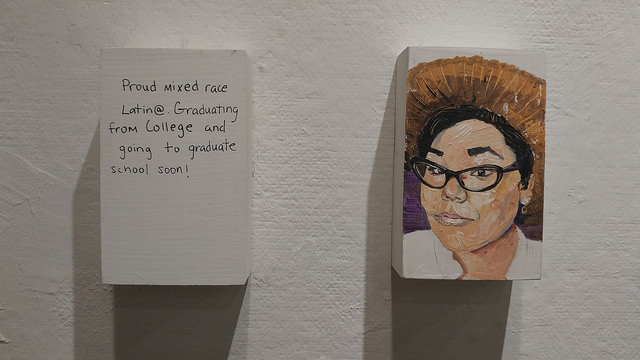 Proud mixed race
Latin@. Graduating
from College and
going to graduate
school soon!